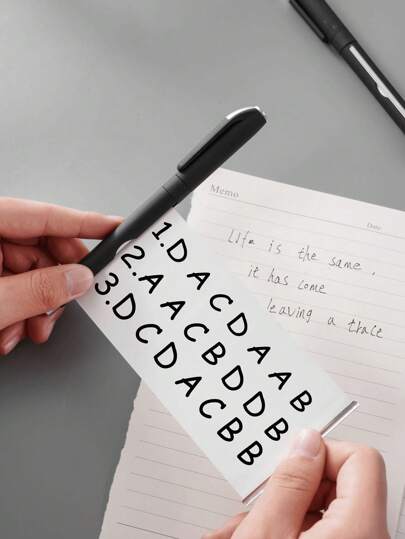 Memo
Date
Life is the same ,
it has come
leaving a trace
1.D A C D A A B
2.A A C B D D B
3.D C D A C B B